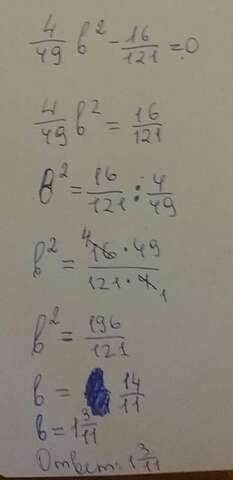 4/49 в² - 16/121 = 0
4/49 в² = 16/121
в² = 16/121 : 4/49
в² = 4 16 · 49 / 121 · 4 1
в² = 196/121
в = 14/11
в = 1 3/11
Ответ: 1 3/11